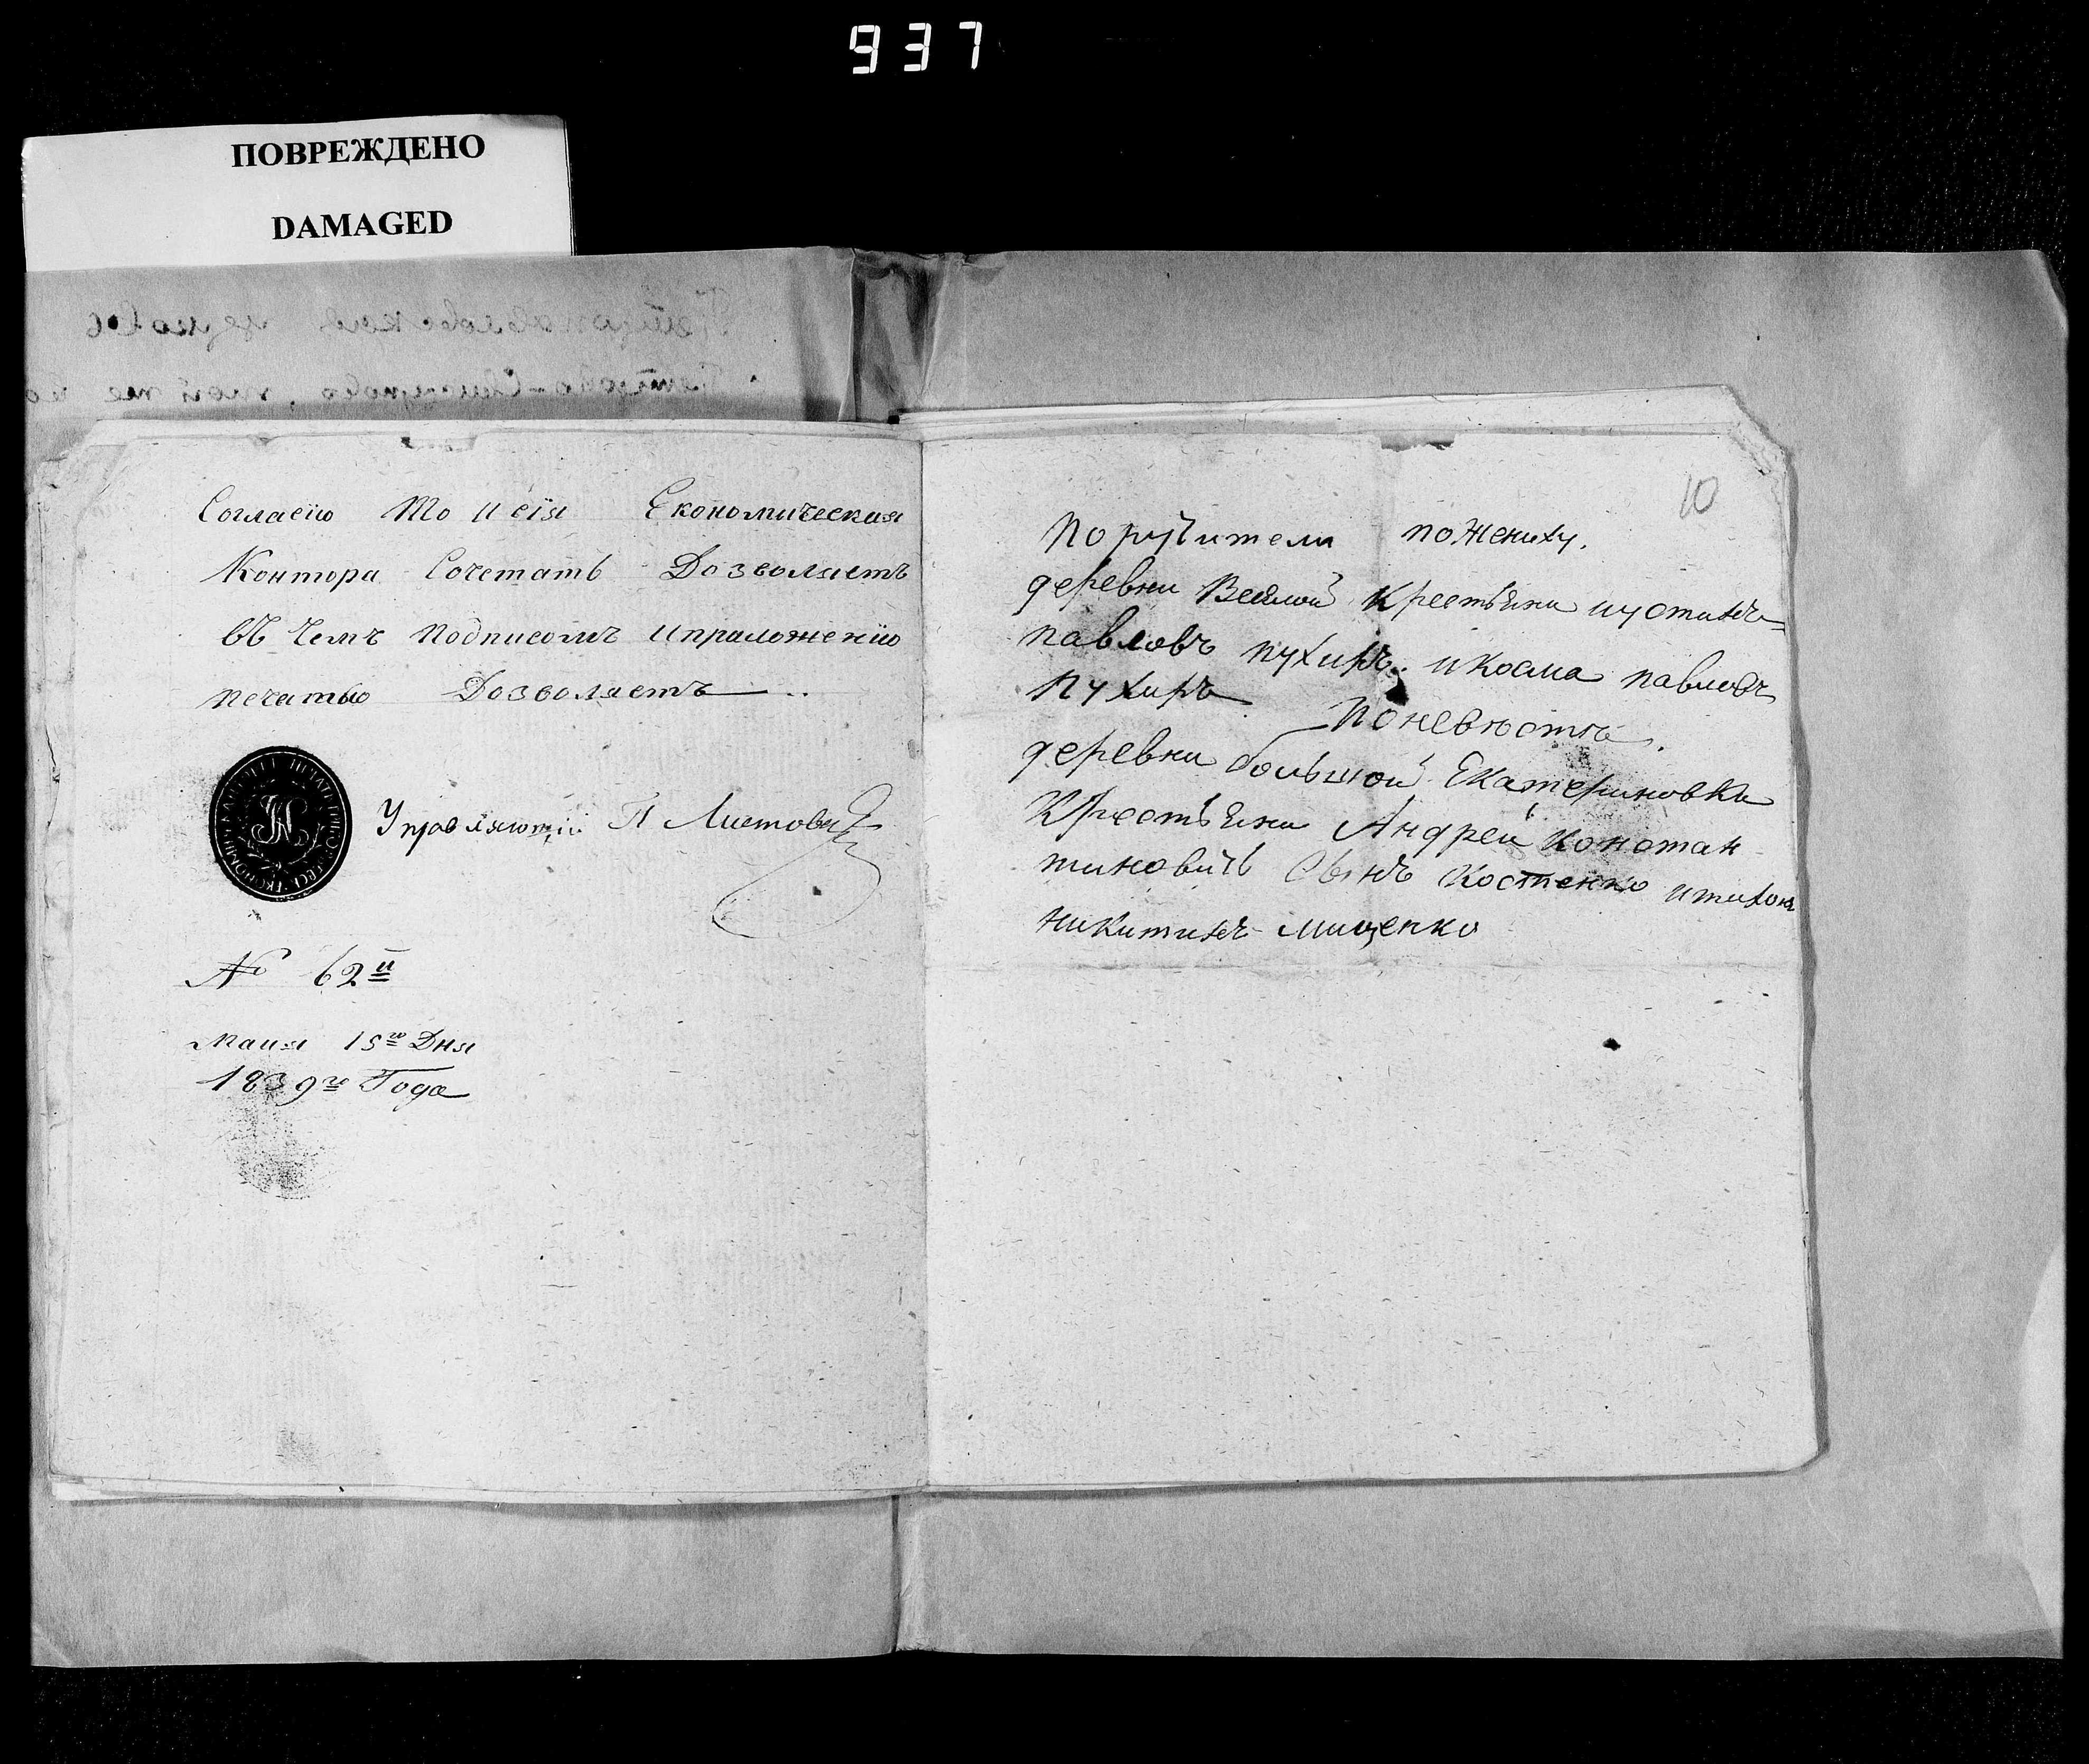 937
ПОВРЕЖДЕНО
DAMAGED
Согласїю то и сїя Економическая
Контора Сочетать Дозволяетъ
въ чемъ подписомъ иприложенїю
печатью Дозволяетъ
Управляющїй П Листовъ
№ 62й
маия 15го Дня
1839го Года
10
Поручители пожениху.
деревни Веселой Крестьяни иустинъ
павловъ пухиръ икосма павловъ
пухиръ
Поневюстъ.
деревни большой Екатериновки
Крестьяни Андрей констан
тиновичь Сынъ Костенко итихонъ
никитинъ мищенко